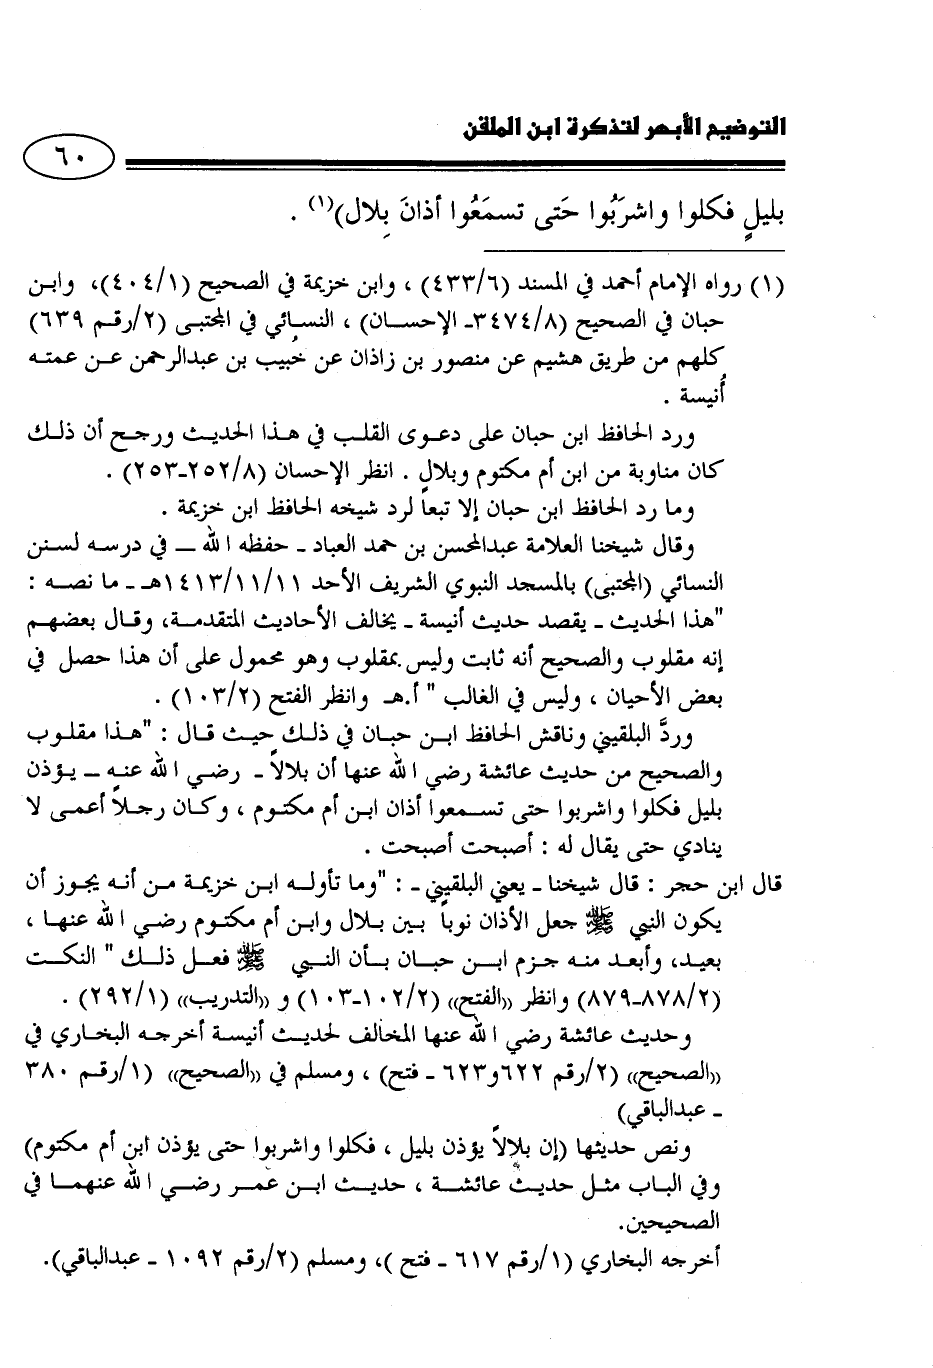 التوضيح الأبهر لتذكرة ابن الملقن
٦٠
بليلٍ فكلوا واشرَبُوا حَتى تسمَعُوا أذانَ بِلال)(١) .
(١) رواه الإمام أحمد في المسند (٤٣٣/٦) ، وابن خزيمة في الصحيح (٤٠٤/١)، وابن
حبان في الصحيح (٣٤٧٤/٨ـ الإحسان) ، النسائي في المجتبى (٢/رقم ٦٣٩)
كلهم من طريق هشيم عن منصور بن زاذان عن خُبيب بن عبدالرحمن عن عمته
أُنيسة .
ورد الحافظ ابن حبان على دعوى القلب في هذا الحديث ورجح أن ذلك
كان مناوبة من ابن أم مكتوم وبلالٍ . انظر الإحسان (٢٥٢/٨ـ٢٥٣) .
وما رد الحافظ ابن حبان إلا تبعاً لرد شيخه الحافظ ابن خزيمة .
وقال شيخنا العلامة عبدالمحسن بن حمد العباد ـ حفظه الله ـ في درسه لسنن
النسائي (المجتبى) بالمسجد النبوي الشريف الأحد ١٤١٣/١١/١١هـ ـ ما نصه :
"هذا الحديث ـ يقصد حديث أنيسة ـ يخالف الأحاديث المتقدمة، وقال بعضهم
إنه مقلوب والصحيح أنه ثابت وليس بمقلوب وهو محمول على أن هذا حصل في
بعض الأحيان ، وليس في الغالب " أ.هـ وانظر الفتح (١٠٣/٢) .
وردَّ البلقيني وناقش الحافظ ابن حبان في ذلك حيث قال : "هذا مقلوب
والصحيح من حديث عائشة رضي الله عنها أن بلالاً ـ رضي الله عنه ـ يؤذن
بليل فكلوا واشربوا حتى تسمعوا أذان ابن أم مكتوم ، وكان رجلاً أعمى لا
ينادي حتى يقال له : أصبحت أصبحت .
قال ابن حجر : قال شيخنا ـ يعني البلقيني ـ : "وما تأوله ابن خزيمة من أنه يجوز أن
يكون النبي ﷺ جعل الأذان نوباً بين بلال وابن أم مكتوم رضي الله عنها ،
بعيد، وأبعد منه جزم ابن حبان بأن النبي ﷺ فعل ذلك " النكت
(٨٧٨/٢ـ٨٧٩) وانظر ((الفتح)) (١٠٢/٢ـ١٠٣) و ((التدريب)) (٢٩٢/١) .
وحديث عائشة رضي الله عنها المخالف لحديث أنيسة أخرجه البخاري في
((الصحيح)) (٢/رقم ٦٢٢و٦٢٣ ـ فتح) ، ومسلم في ((الصحيح)) (١/رقم ٣٨٠
ـ عبدالباقي)
ونص حديثها (إن بلالاً يؤذن بليل ، فكلوا واشربوا حتى يؤذن ابن أم مكتوم)
وفي الباب مثل حديث عائشة ، حديث ابن عمر رضي الله عنهما في
الصحيحين.
أخرجه البخاري (١/رقم ٦١٧ ـ فتح )، ومسلم (٢/رقم ١٠٩٢ ـ عبدالباقي).